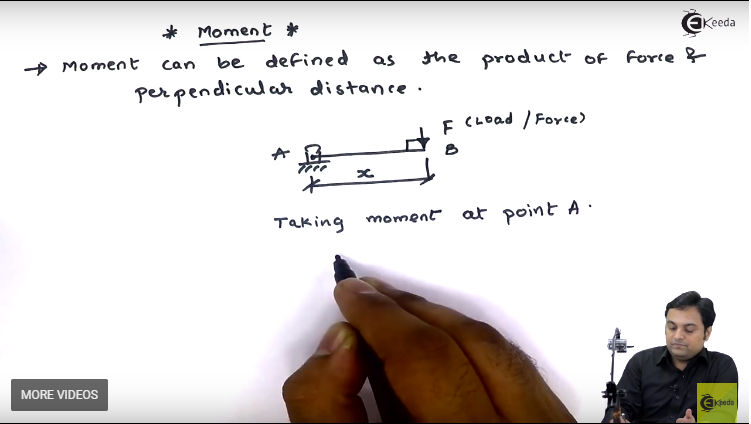 * Moment *
EKeeda
→ Moment can be defined as the product of Force &
perpendicular distance.
F (Load / Force)
A
B
x
Taking moment at point A.
MORE VIDEOS
EKeeda